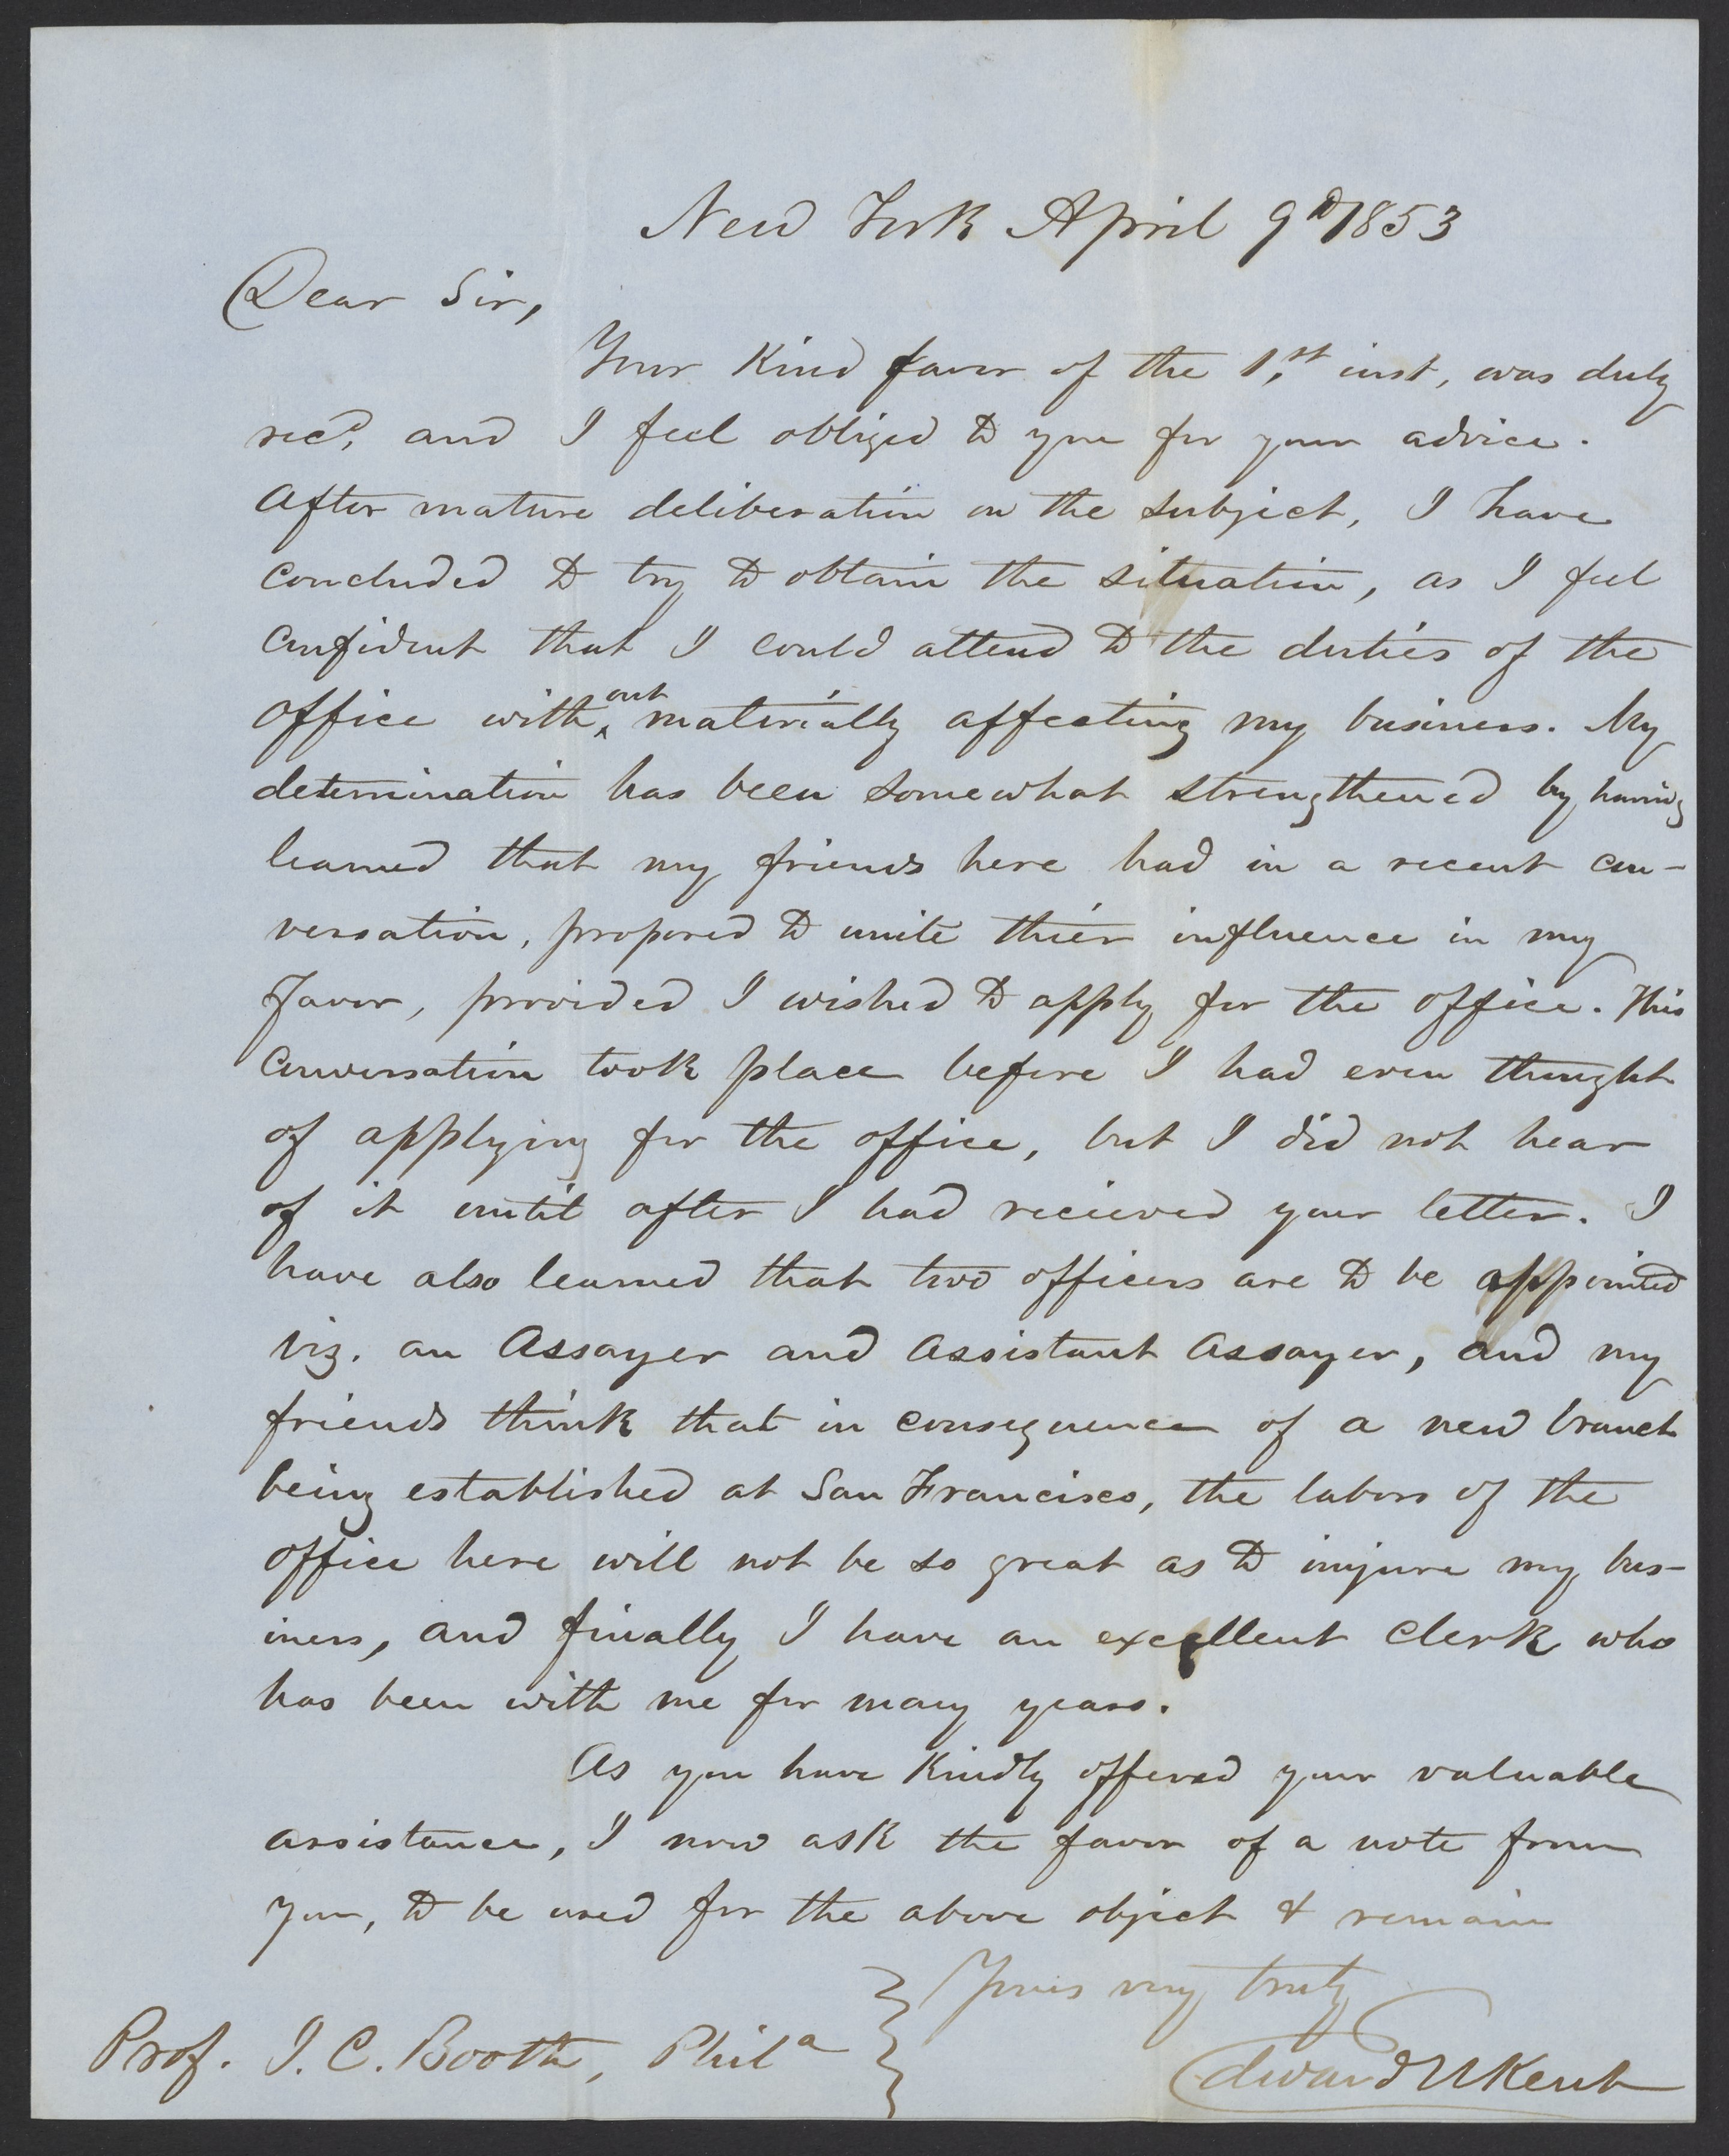 New York April 9th 1853
Dear Sir,
Your Kind favor of the 1st inst, was duly
recd, and I feel obliged to you for your advice.
After mature deliberation on the subject, I have
concluded to try to obtain the situation, as I feel
confident that I could attend to the duties of the
office without materially affecting my business. My
determination has been somewhat strengthened by having
learned that my friends here had in a recent con-
versation, proposed to unite thier influence in my
favor, provided I wished to apply for the office. This
conversation took place before I had even thought
of applying for the office, but I did not hear
of it until after I had recieved your letter. I
have also learned that two officers are to be appointed
viz. an Assayer and Assistant Assayer, and my
friends think that in consequence of a new branch
being established at San Francisco, the labors of the
office here will not be so great as to injure my bus-
iness, and finally I have an excellent Clerk who
has been with me for many years.
As you have Kindly offered your valuable
assistance, I now ask the favor of a note from
you, to be used for the above object & remain
Yours very truly
Prof. J. C. Booth, Phila
Edward N Kent